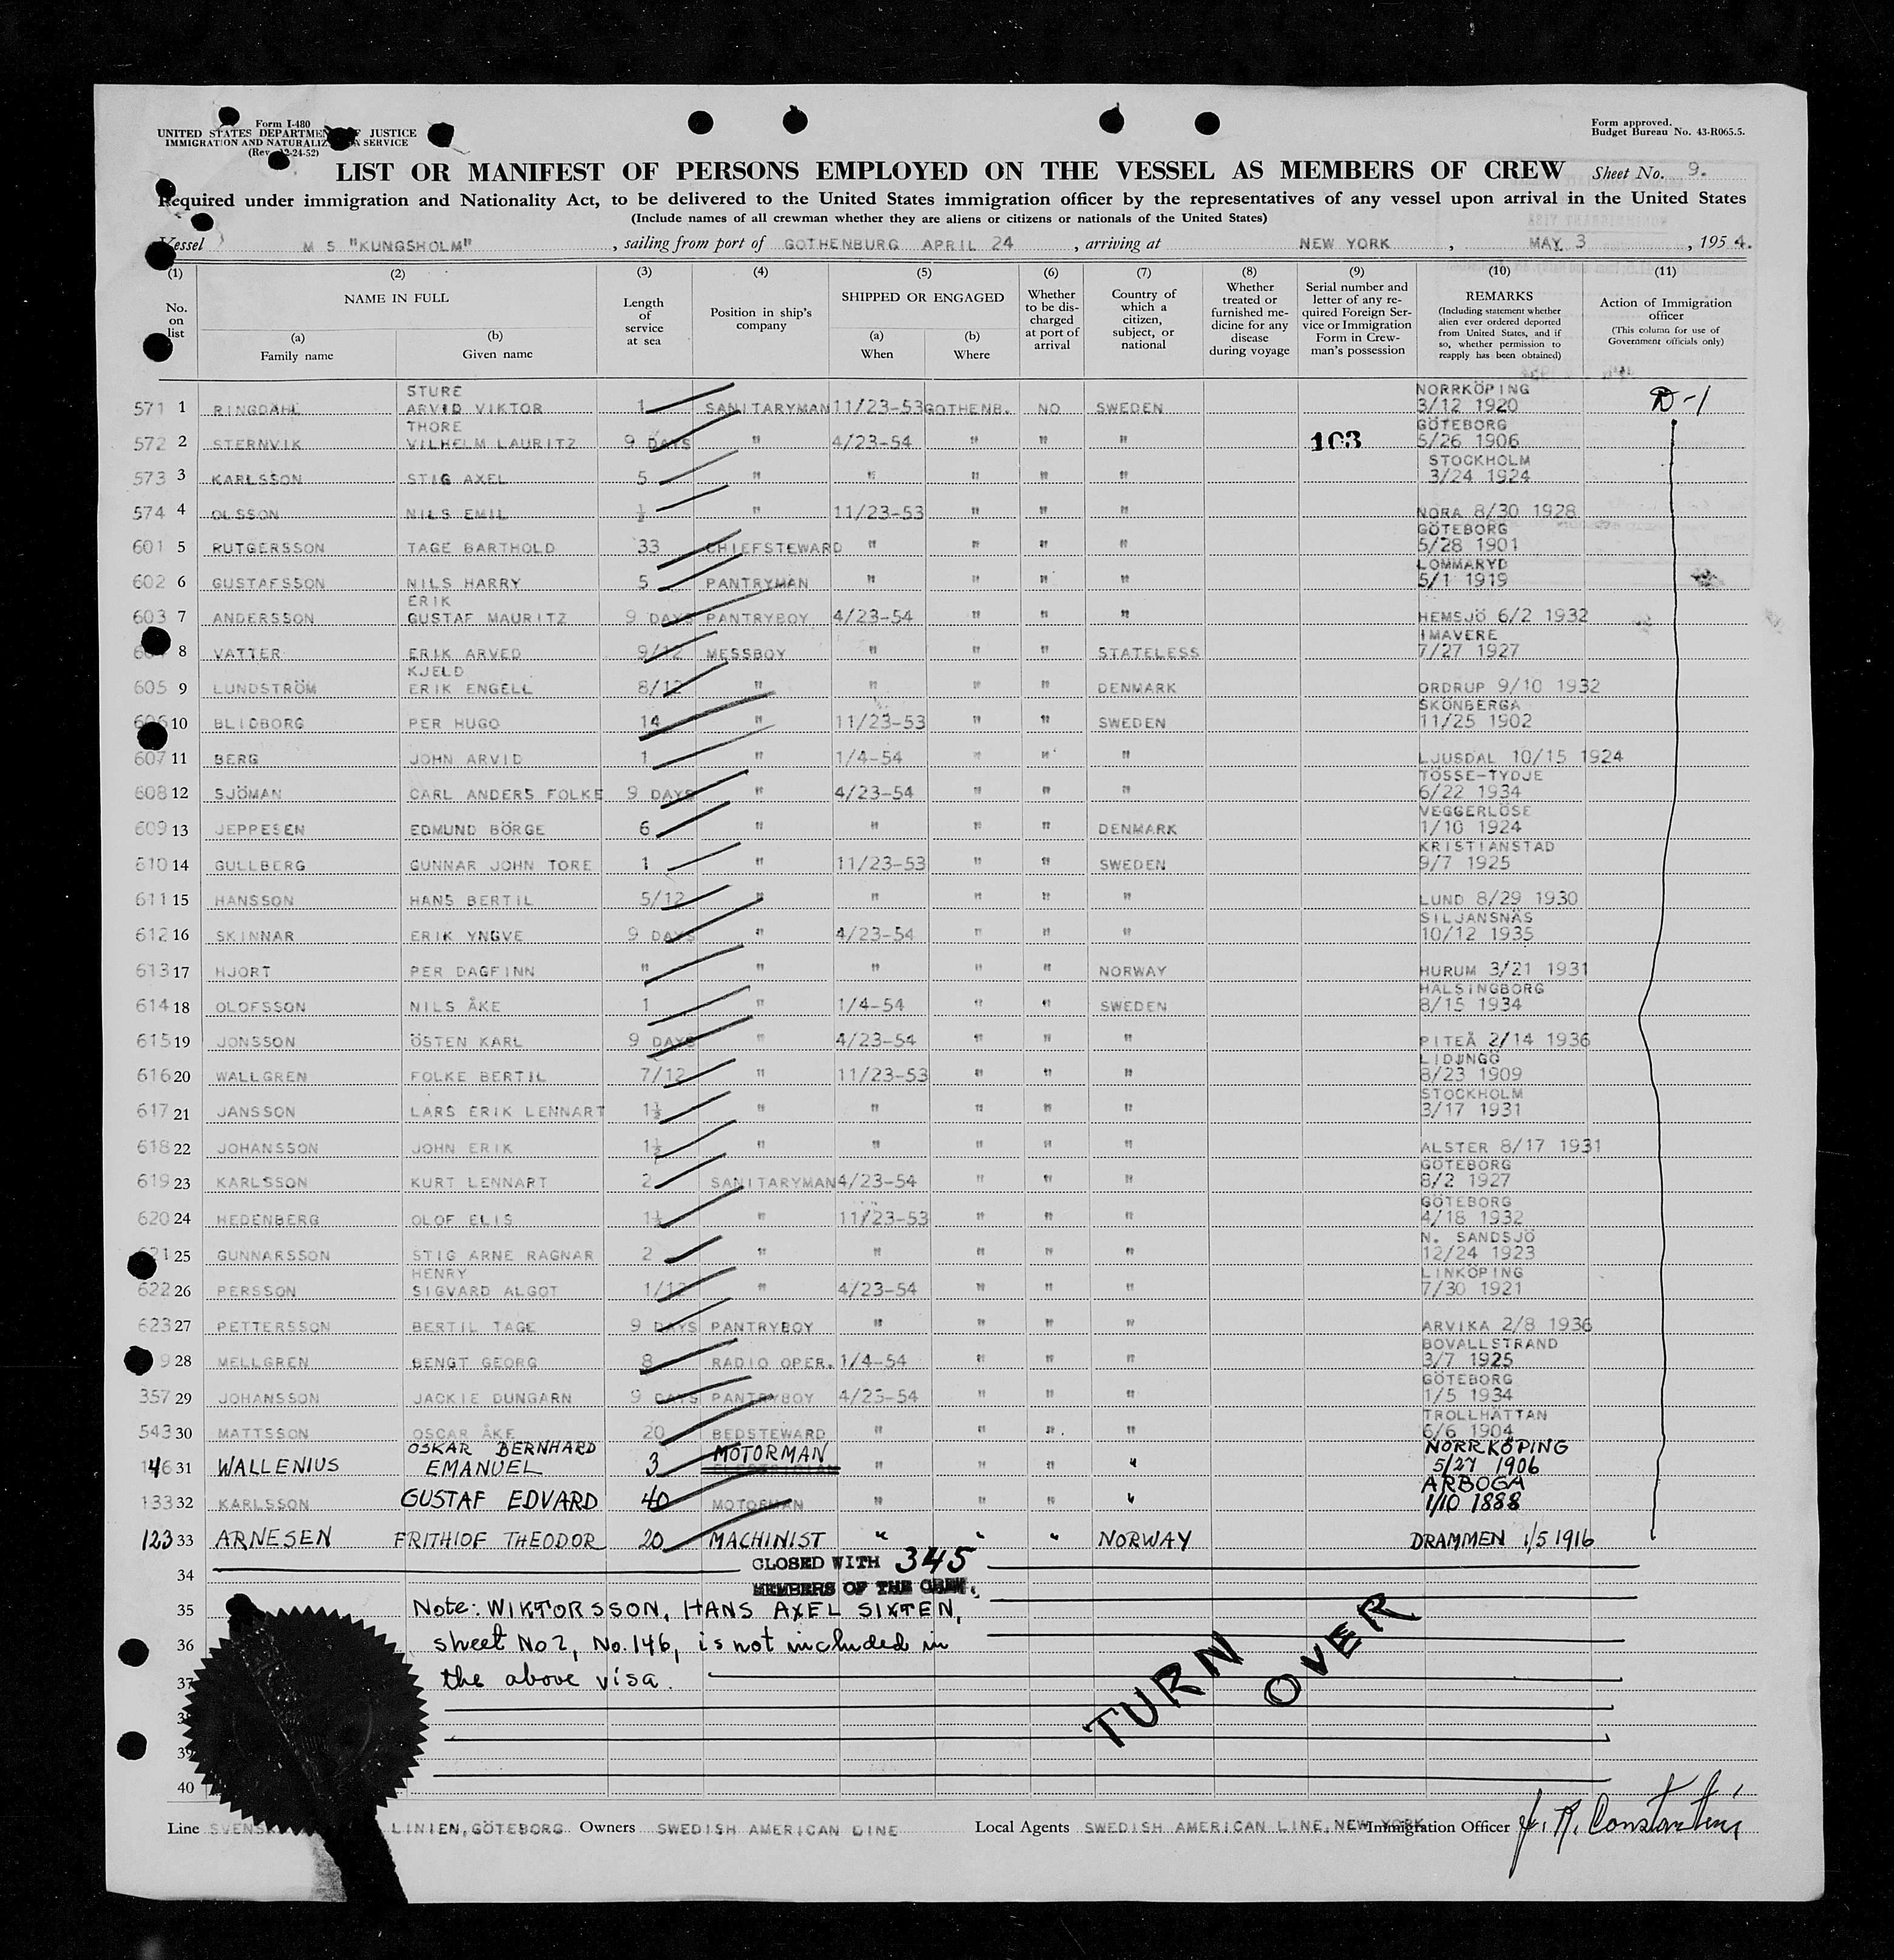 Form I-480
UNITED STATES DEPARTMENT OF JUSTICE
IMMIGRATION AND NATURALIZATION SERVICE
(Rev. 12-24-52)
Form approved.
Budget Bureau No. 43-R065.5.
LIST OR MANIFEST OF PERSONS EMPLOYED ON THE VESSEL AS MEMBERS OF CREW Sheet No. 9.
Required under immigration and Nationality Act, to be delivered to the United States immigration officer by the representatives of any vessel upon arrival in the United States
(Include names of all crewman whether they are aliens or citizens or nationals of the United States)
Vessel M S "KUNGSHOLM", sailing from port of GOTHENBURG APRIL 24, arriving at NEW YORK, MAY 3, 1954.
(1) (2) (3) (4) (5) (6) (7) (8) (9) (10) (11)
No. on list
NAME IN FULL
(a) Family name
(b) Given name
Length of service at sea
Position in ship's company
SHIPPED OR ENGAGED
(a) When
(b) Where
Whether to be discharged at port of arrival
Country of which a citizen, subject, or national
Whether treated or furnished medicine for any disease during voyage
Serial number and letter of any required Foreign Service or Immigration Form in Crewman's possession
REMARKS
(Including statement whether alien ever ordered deported from United States, and if so, whether permission to reapply has been obtained)
Action of Immigration officer
(This column for use of Government officials only)
571 1 RINGDAHL STURE ARVID VIKTOR 1 SANITARYMAN 11/23-53 GOTHENB. NO SWEDEN NORRKÖPING 3/12 1920 D-1
572 2 STERNVIK THORE VILHELM LAURITZ 9 DAYS " 4/23-54 " " " 103 GÖTEBORG 5/26 1906
573 3 KARLSSON STIG AXEL 5 " " " " " STOCKHOLM 3/24 1924
574 4 OLSSON NILS EMIL ½ " 11/23-53 " " " NORA 8/30 1928
601 5 RUTGERSSON TAGE BARTHOLD 33 CHIEFSTEWARD " " " " GÖTEBORG 5/28 1901
602 6 GUSTAFSSON NILS HARRY 5 PANTRYMAN " " " " LOMMARYD 5/1 1919
603 7 ANDERSSON ERIK GUSTAF MAURITZ 9 DAYS PANTRYBOY 4/23-54 " " " HEMSJÖ 6/2 1932
8 VATTER ERIK ARVED 9/12 MESSBOY " " " STATELESS IMAVERE 7/27 1927
605 9 LUNDSTRÖM KJELD ERIK ENGELL 8/12 " " " " DENMARK ORDRUP 9/10 1932
606 10 BLIDBORG PER HUGO 14 " 11/23-53 " " SWEDEN SKÖNBERGA 11/25 1902
607 11 BERG JOHN ARVID 1 " 1/4-54 " " " LJUSDAL 10/15 1924
608 12 SJÖMAN CARL ANDERS FOLKE 9 DAYS " 4/23-54 " " " TÖSSE-TYDJE 6/22 1934
609 13 JEPPESEN EDMUND BÖRGE 6 " " " " DENMARK VEGGERLÖSE 1/10 1924
610 14 GULLBERG GUNNAR JOHN TORE 1 " 11/23-53 " " SWEDEN KRISTIANSTAD 9/7 1925
611 15 HANSSON HANS BERTIL 5/12 " " " " " LUND 8/29 1930
612 16 SKINNAR ERIK YNGVE 9 DAYS " 4/23-54 " " " SILJANSNÄS 10/12 1935
613 17 HJORT PER DAGFINN " " " " " NORWAY HURUM 3/21 1931
614 18 OLOFSSON NILS ÅKE 1 " 1/4-54 " " SWEDEN HALSINGBORG 8/15 1934
615 19 JONSSON ÖSTEN KARL 9 DAYS " 4/23-54 " " " PITEÅ 2/14 1936
616 20 WALLGREN FOLKE BERTIL 7/12 " 11/23-53 " " " LIDINGÖ 8/23 1909
617 21 JANSSON LARS ERIK LENNART 1½ " " " " " STOCKHOLM 3/17 1931
618 22 JOHANSSON JOHN ERIK 1½ " " " " " ALSTER 8/17 1931
619 23 KARLSSON KURT LENNART 2 SANITARYMAN 4/23-54 " " " GÖTEBORG 8/2 1927
620 24 HEDENBERG OLOF ELIS 1½ " 11/23-53 " " " GÖTEBORG 4/18 1932
621 25 GUNNARSSON STIG ARNE RAGNAR 2 " " " " " N. SANDSJÖ 12/24 1923
622 26 PERSSON HENRY SIGVARD ALGOT 1/12 " 4/23-54 " " " LINKÖPING 7/30 1921
623 27 PETTERSSON BERTIL TAGE 9 DAYS PANTRYBOY " " " " ARVIKA 2/8 1936
9 28 MELLGREN BENGT GEORG 8 RADIO OPER. 1/4-54 " " " BOVALLSTRAND 3/7 1925
357 29 JOHANSSON JACKIE DUNGARN 9 DAYS PANTRYBOY 4/23-54 " " " GÖTEBORG 1/5 1934
543 30 MATTSSON OSCAR ÅKE 20 BEDSTEWARD " " " " TROLLHÄTTAN 6/6 1904
146 31 WALLENIUS OSKAR BERNHARD EMANUEL 3 MOTORMAN " " " " NORRKÖPING 5/27 1906
133 32 KARLSSON GUSTAF EDVARD 40 MOTORMAN " " " " ARBOGA 1/10 1888
123 33 ARNESEN FRITHIOF THEODOR 20 MACHINIST " " " NORWAY DRAMMEN 1/5 1916
34 CLOSED WITH 345
MEMBERS OF THE CREW.
35 Note: WIKTORSSON, HANS AXEL SIXTEN,
36 sheet No 2, No. 146, is not included in
37 the above visa.
TURN OVER
38
39
40
Line SVENSK LINIEN, GÖTEBORG Owners SWEDISH AMERICAN LINE Local Agents SWEDISH AMERICAN LINE, NEW YORK Immigration Officer J. R. Constantini